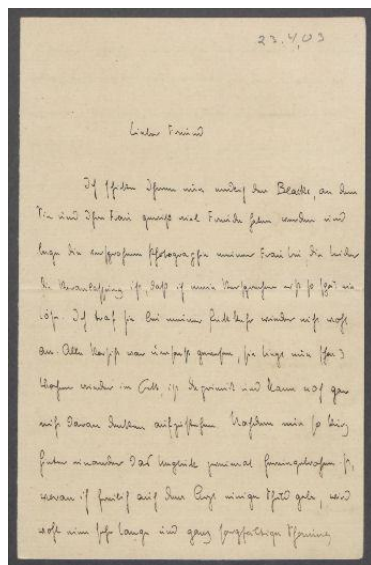 23.4.03
Lieber Freund
Ich schicke Ihnen nun endlich den Blake, an dem
Sie und Ihre Frau gewiß viel Freude haben werden und
lege die versprochene Photographie meiner Frau bei die leider
die Veranlassung ist, daß ich mein Versprechen erst so spät ein
löse. Ich traf sie bei meiner Rückkehr wieder nicht wohl
an. Alle Vorsicht war umsonst gewesen, sie liegt nun schon 3
Wochen wieder im Bett, ist deprimiert und kann noch gar
nicht daran denken aufzustehen. Nachdem nun so kurz
hinter einander das Unglück zweimal hereingebrochen ist,
woran ich freilich auf den Arzt einige Schuld gebe, wird
wohl eine sehr lange und ganz sorgfältige Schonung